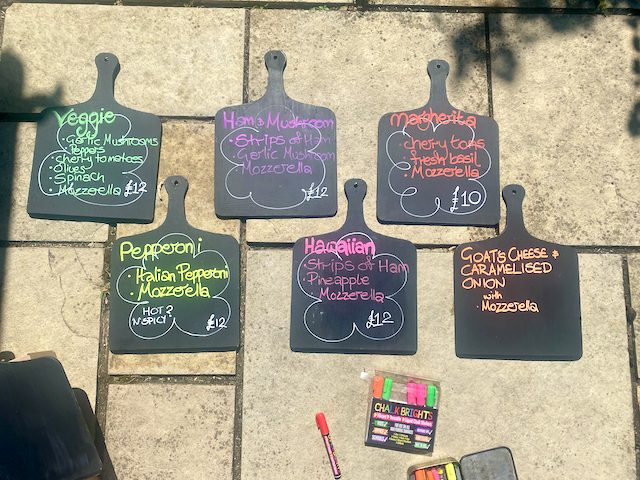 Veggie
· Garlic Mushrooms
Peppers
· cherry tomatoes
· Olives
· Spinach
· Mozzerella £12
Ham & Mushroom
· Strips of Ham
· Garlic Mushroom
· Mozzarella
£12
Margherita
· cherry toms
· fresh basil
· Mozzerella
£10
Pepperoni
· Italian Pepperoni
· Mozzerella
HOT?
'N SPICY' £12
Hawaiian
· Strips of Ham
· Pineapple
· Mozzerella
£12
GOAT'S CHEESE &
CARAMELISED
ONION
with
· Mozzerella
CHALK BRIGHTS